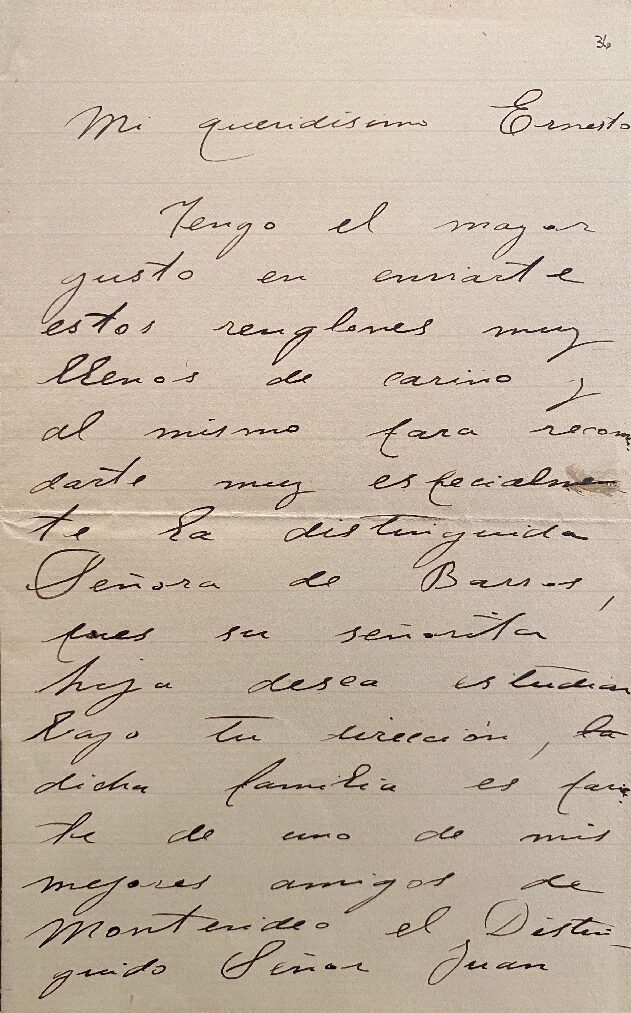 36
Mi queridisimo Ernesto
Tengo el mayor
gusto en enviarte
estos renglones muy
llenos de carino y
al mismo para recom
darte muy especialmen
te la distinguida
Señora de Barros,
pues su señorita
hija desea estudiar
bajo tu dirección, la
dicha familia es parie
te de uno de mis
mejores amigos de
Montevideo el Distin
guido Señor Juan